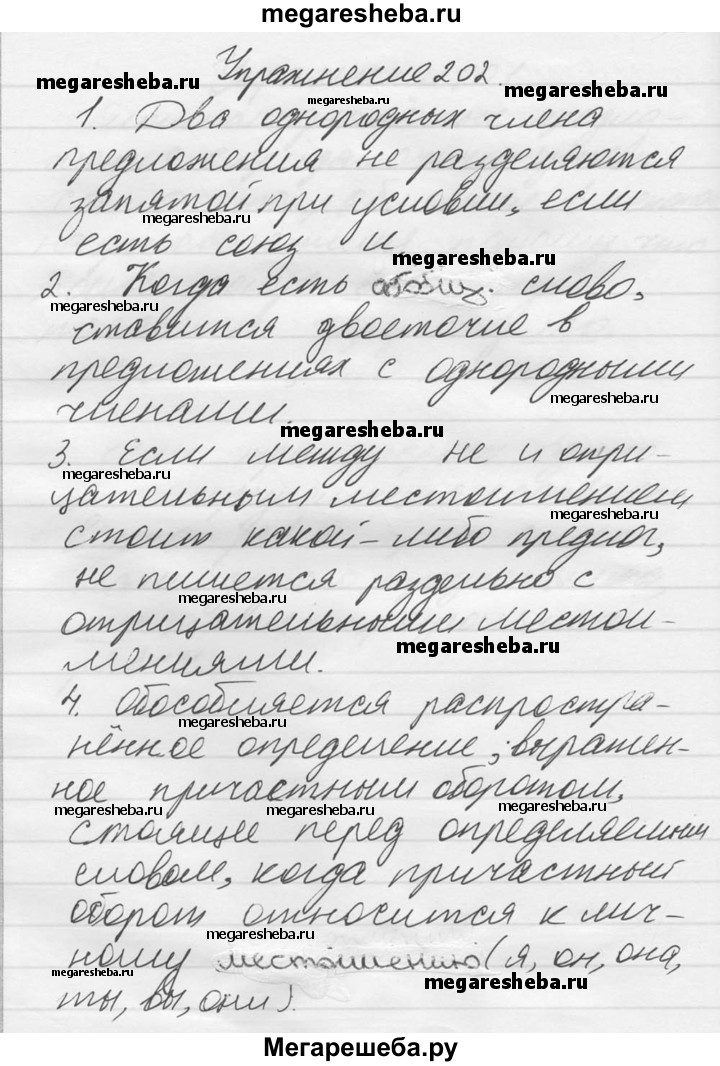 megaresheba.ru
Упражнение 202.
megaresheba.ru
megaresheba.ru
megaresheba.ru
1. Два однородных члена
предложения не разделяются
запятой при условии, если
megaresheba.ru
есть союз и.
megaresheba.ru
2. Когда есть обобщ. слово,
megaresheba.ru
ставится двоеточие в
предложениях с однородными
членами.
megaresheba.ru
megaresheba.ru
3. Если между не и отри-
megaresheba.ru
цательным местоимением
megaresheba.ru
стоит какой-либо предлог,
не пишется раздельно с
megaresheba.ru
отрицательными местои-
megaresheba.ru
мениями.
4. Обособляется распростра-
megaresheba.ru
нённое определение, выражен-
ное причастным оборотом,
megaresheba.ru
megaresheba.ru
стоящее перед определяемым
словом, когда причастный
оборот относится к лич-
megaresheba.ru
ному местоимению (я, он, она,
megaresheba.ru
megaresheba.ru
ты, вы, они).
Мегарешеба.ру